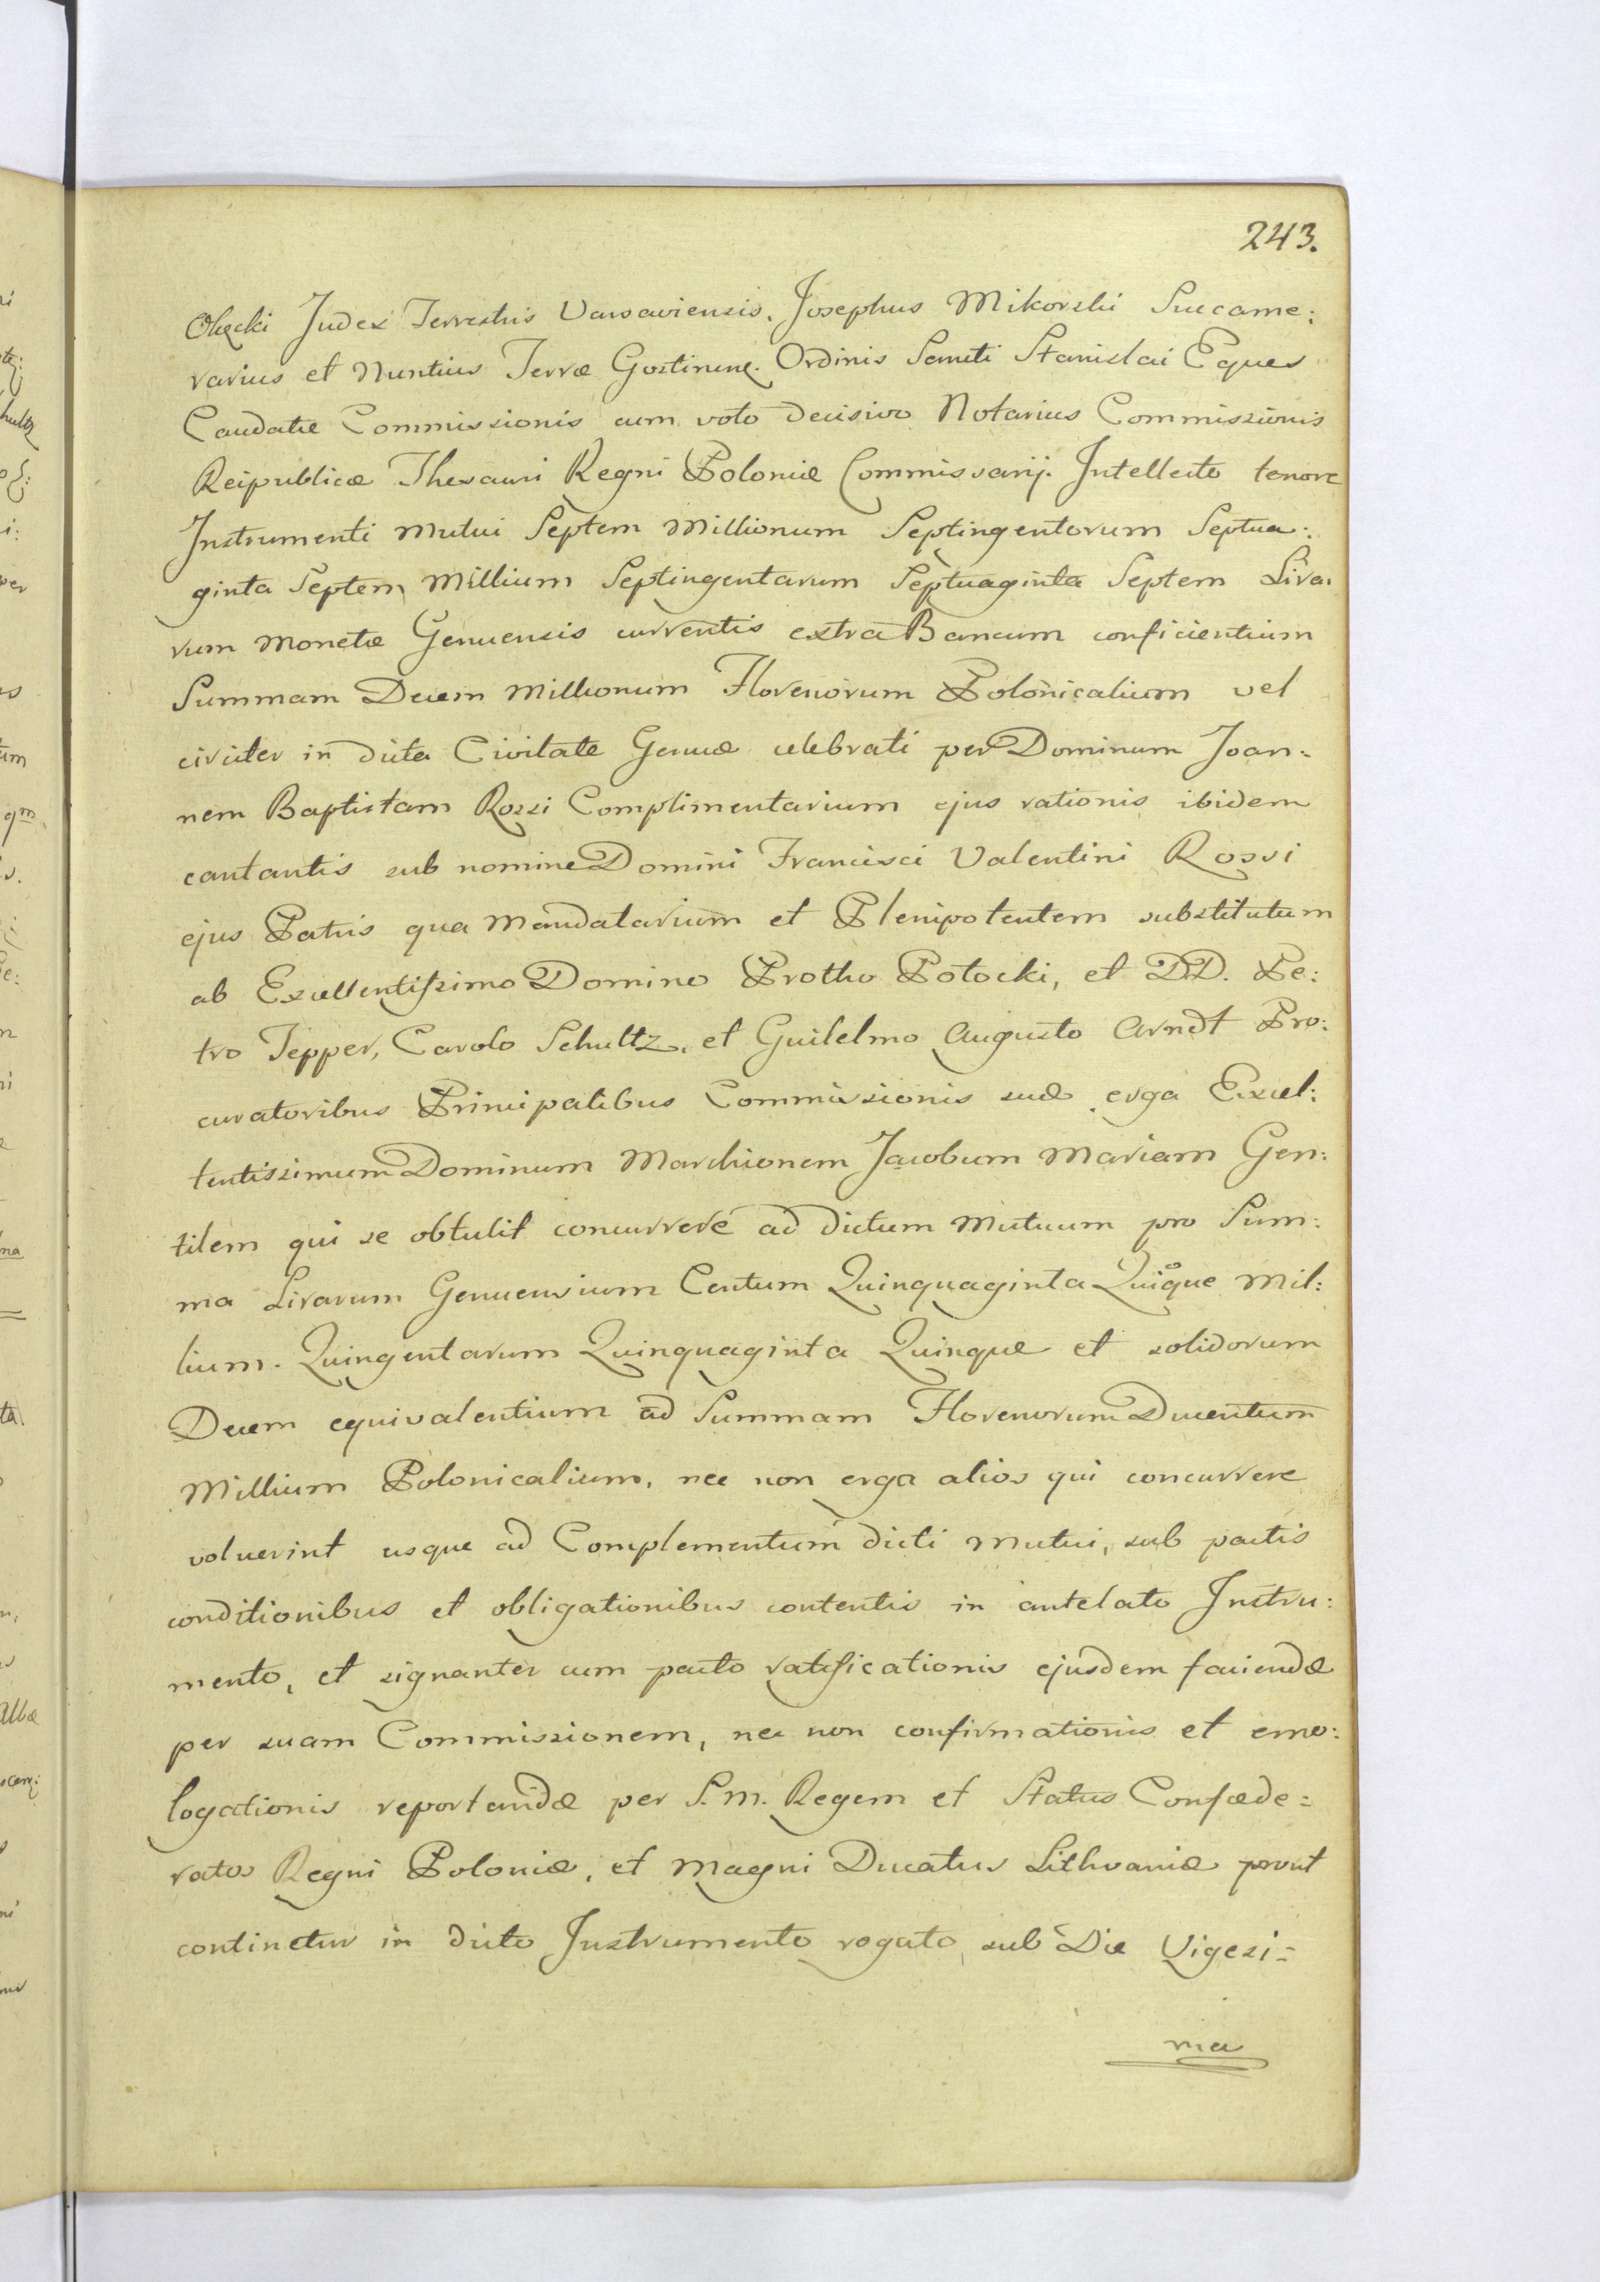 243.
Olęcki Judex Terrestris Varsaviensis. Josephus Mikorski Succame:
rarius et Nuntius Terræ Gostinens. Ordinis Sancti Stanislai Eques
Caudatæ Commissionis cum voto decisivo Notarius Commissionis
Reipublicæ Thesauri Regni Poloniæ Commissarij. Intellecto tenore
Instrumenti Mutui Septem Millionum Septingentorum Septua:
ginta Septem Millium Septingentarum Septuaginta Septem Lira:
rum Monetæ Genuensis currentis extra Bancum conficientium
Summam Decem Millionum Florenorum Polonicalium vel
circiter in dicta Civitate Genuæ celebrati per Dominum Joan:
nem Baptistam Rossi Complimentarium ejus rationis ibidem
cantantis sub nomine Domini Francisci Valentini Rossi
ejus Patris qua Mandatarium et Plenipotentem substitutum
ab Excellentissimo Domino Protho Potocki, et DD. Pe:
tro Tepper, Carolo Schultz, et Guilelmo Augusto Arndt Pro:
curatoribus Principalibus Commissionis suæ erga Excel:
lentissimum Dominum Marchionem Jacobum Mariam Gen:
tilem qui se obtulit concurrere ad dictum Mutuum pro Sum:
ma Lirarum Genuensium Centum Quinquaginta Quiq̊ue Mil:
lium. Quingentarum Quinquaginta Quinque et solidorum
Decem equivalentium ad Summam Florenorum Ducentum
Millium Polonicalium, nec non erga alios qui concurrere
voluerint usque ad Complementum dicti Mutui, sub pactis
conditionibus et obligationibus contentis in antelato Instru:
mento, et signanter cum pacto ratificationis ejusdem faciendæ
per suam Commissionem, nec non confirmationis et emo:
logationis reportandæ per S.M. Regem et Status Confæde:
ratos Regni Poloniæ, et Magni Ducatus Lithvaniæ prout
continetur in dicto Instrumento rogato sub Die Vigesi:
ma